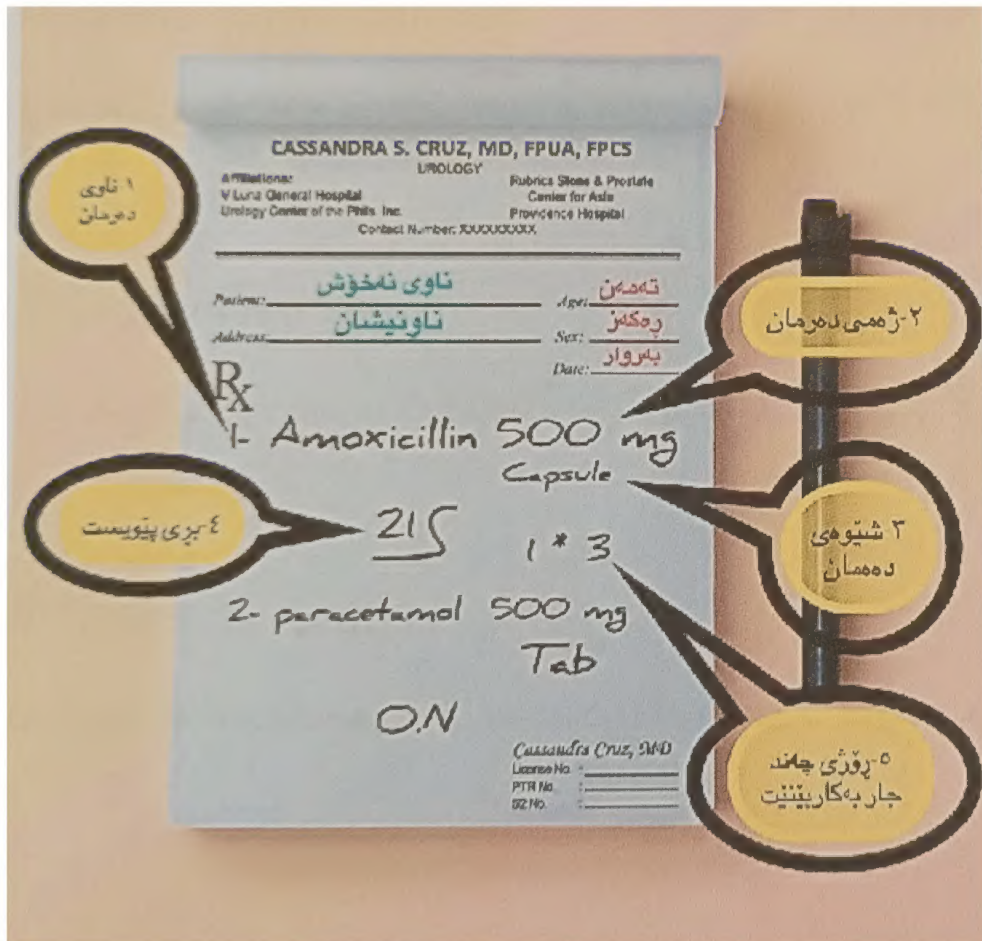 CASSANDRA S. CRUZ, MD, FPUA, FPCS
UROLOGY
Affiliations:
V Luna General Hospital
Urology Center of the Phils. Inc.
Rubrics Stone & Prostate
Center for Asia
Providence Hospital
Contact Number: XXXXXXXXX
Patient: ناوی نەخۆش
Age: تەمەن
Address: ناونیشان
Sex: ڕەگەز
Date: بەروار
Rx
1- Amoxicillin 500 mg
Capsule
21
1 * 3
2- paracetamol 500 mg
Tab
O.N
Cassandra Cruz, MD
License No. :
PTR No. :
S2 No. :
١-ناوی
دەرمان
٢-ژەمی دەرمان
٣ شێوەی
دەمان
٤-بڕی پێویست
٥-ڕۆژی چەند
جار بەکاربێنێت